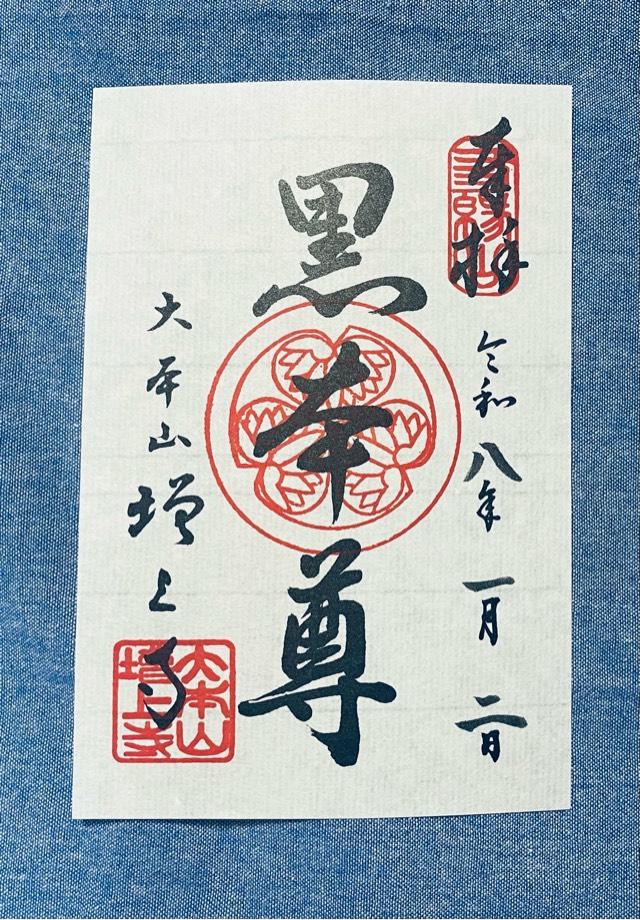 奉拝
令和八年一月二日
黒本尊
大本山増上寺
大本山
増上寺